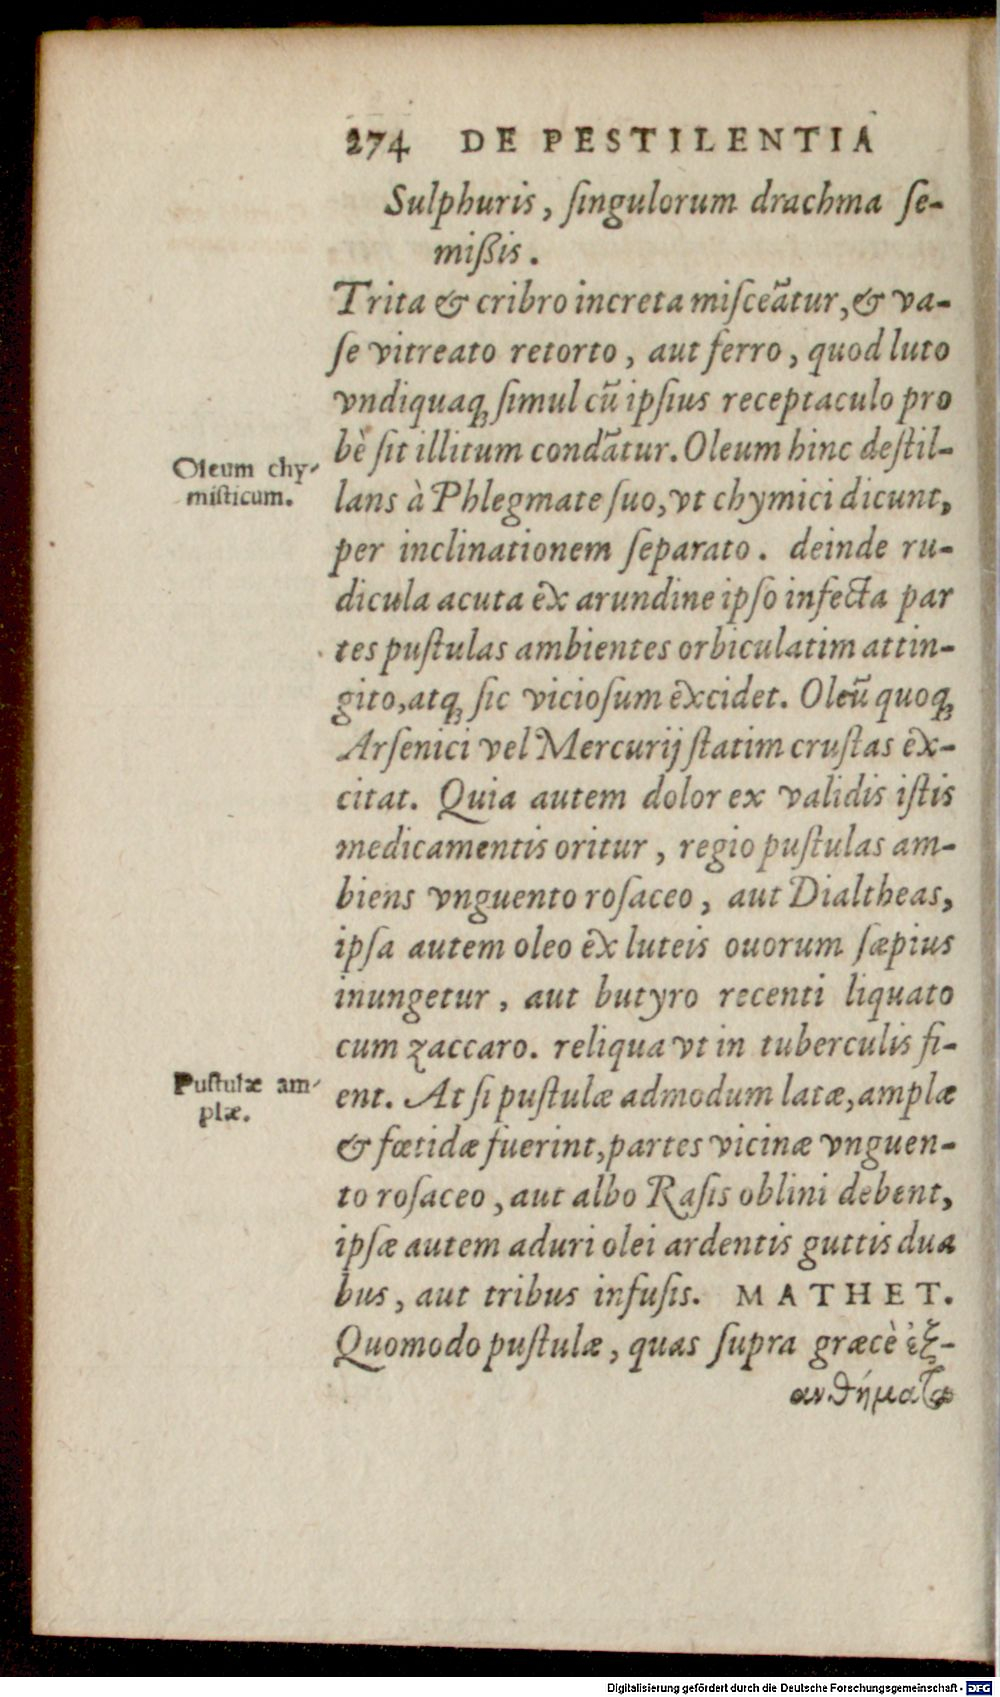 274 DE PESTILENTIA
Sulphuris, ſingulorum drachma ſe-
mißis.
Trita & cribro increta miſceãtur, & va-
ſe vitreato retorto, aut ferro, quod luto
vndiquaq; ſimul cũ ipſius receptaculo pro
bè ſit illitum condãtur. Oleum hinc deſtil-
Oleum chy-
miſticum.
lans à Phlegmate ſuo, vt chymici dicunt,
per inclinationem ſeparato. deinde ru-
dicula acuta ex arundine ipſo infecta par
tes puſtulas ambientes orbiculatim attin-
gito, atq; ſic vicioſum excidet. Oleũ quoq;
Arſenici vel Mercurij ſtatim cruſtas ex-
citat. Quia autem dolor ex validis iſtis
medicamentis oritur, regio puſtulas am-
biens vnguento roſaceo, aut Dialtheas,
ipſa autem oleo ex luteis ouorum ſæpius
inungetur, aut butyro recenti liquato
cum zaccaro. reliqua vt in tuberculis fi-
Puſtulæ am-
plæ.
ent. At ſi puſtulæ admodum latæ, amplæ
& fœtidæ fuerint, partes vicinæ vnguen-
to roſaceo, aut albo Raſis oblini debent,
ipſæ autem aduri olei ardentis guttis dua
bus, aut tribus infuſis. MATHET.
Quomodo puſtulæ, quas ſupra græcè ἐξ-
ανθήματα
Digitalisierung gefördert durch die Deutsche Forschungsgemeinschaft - DFG